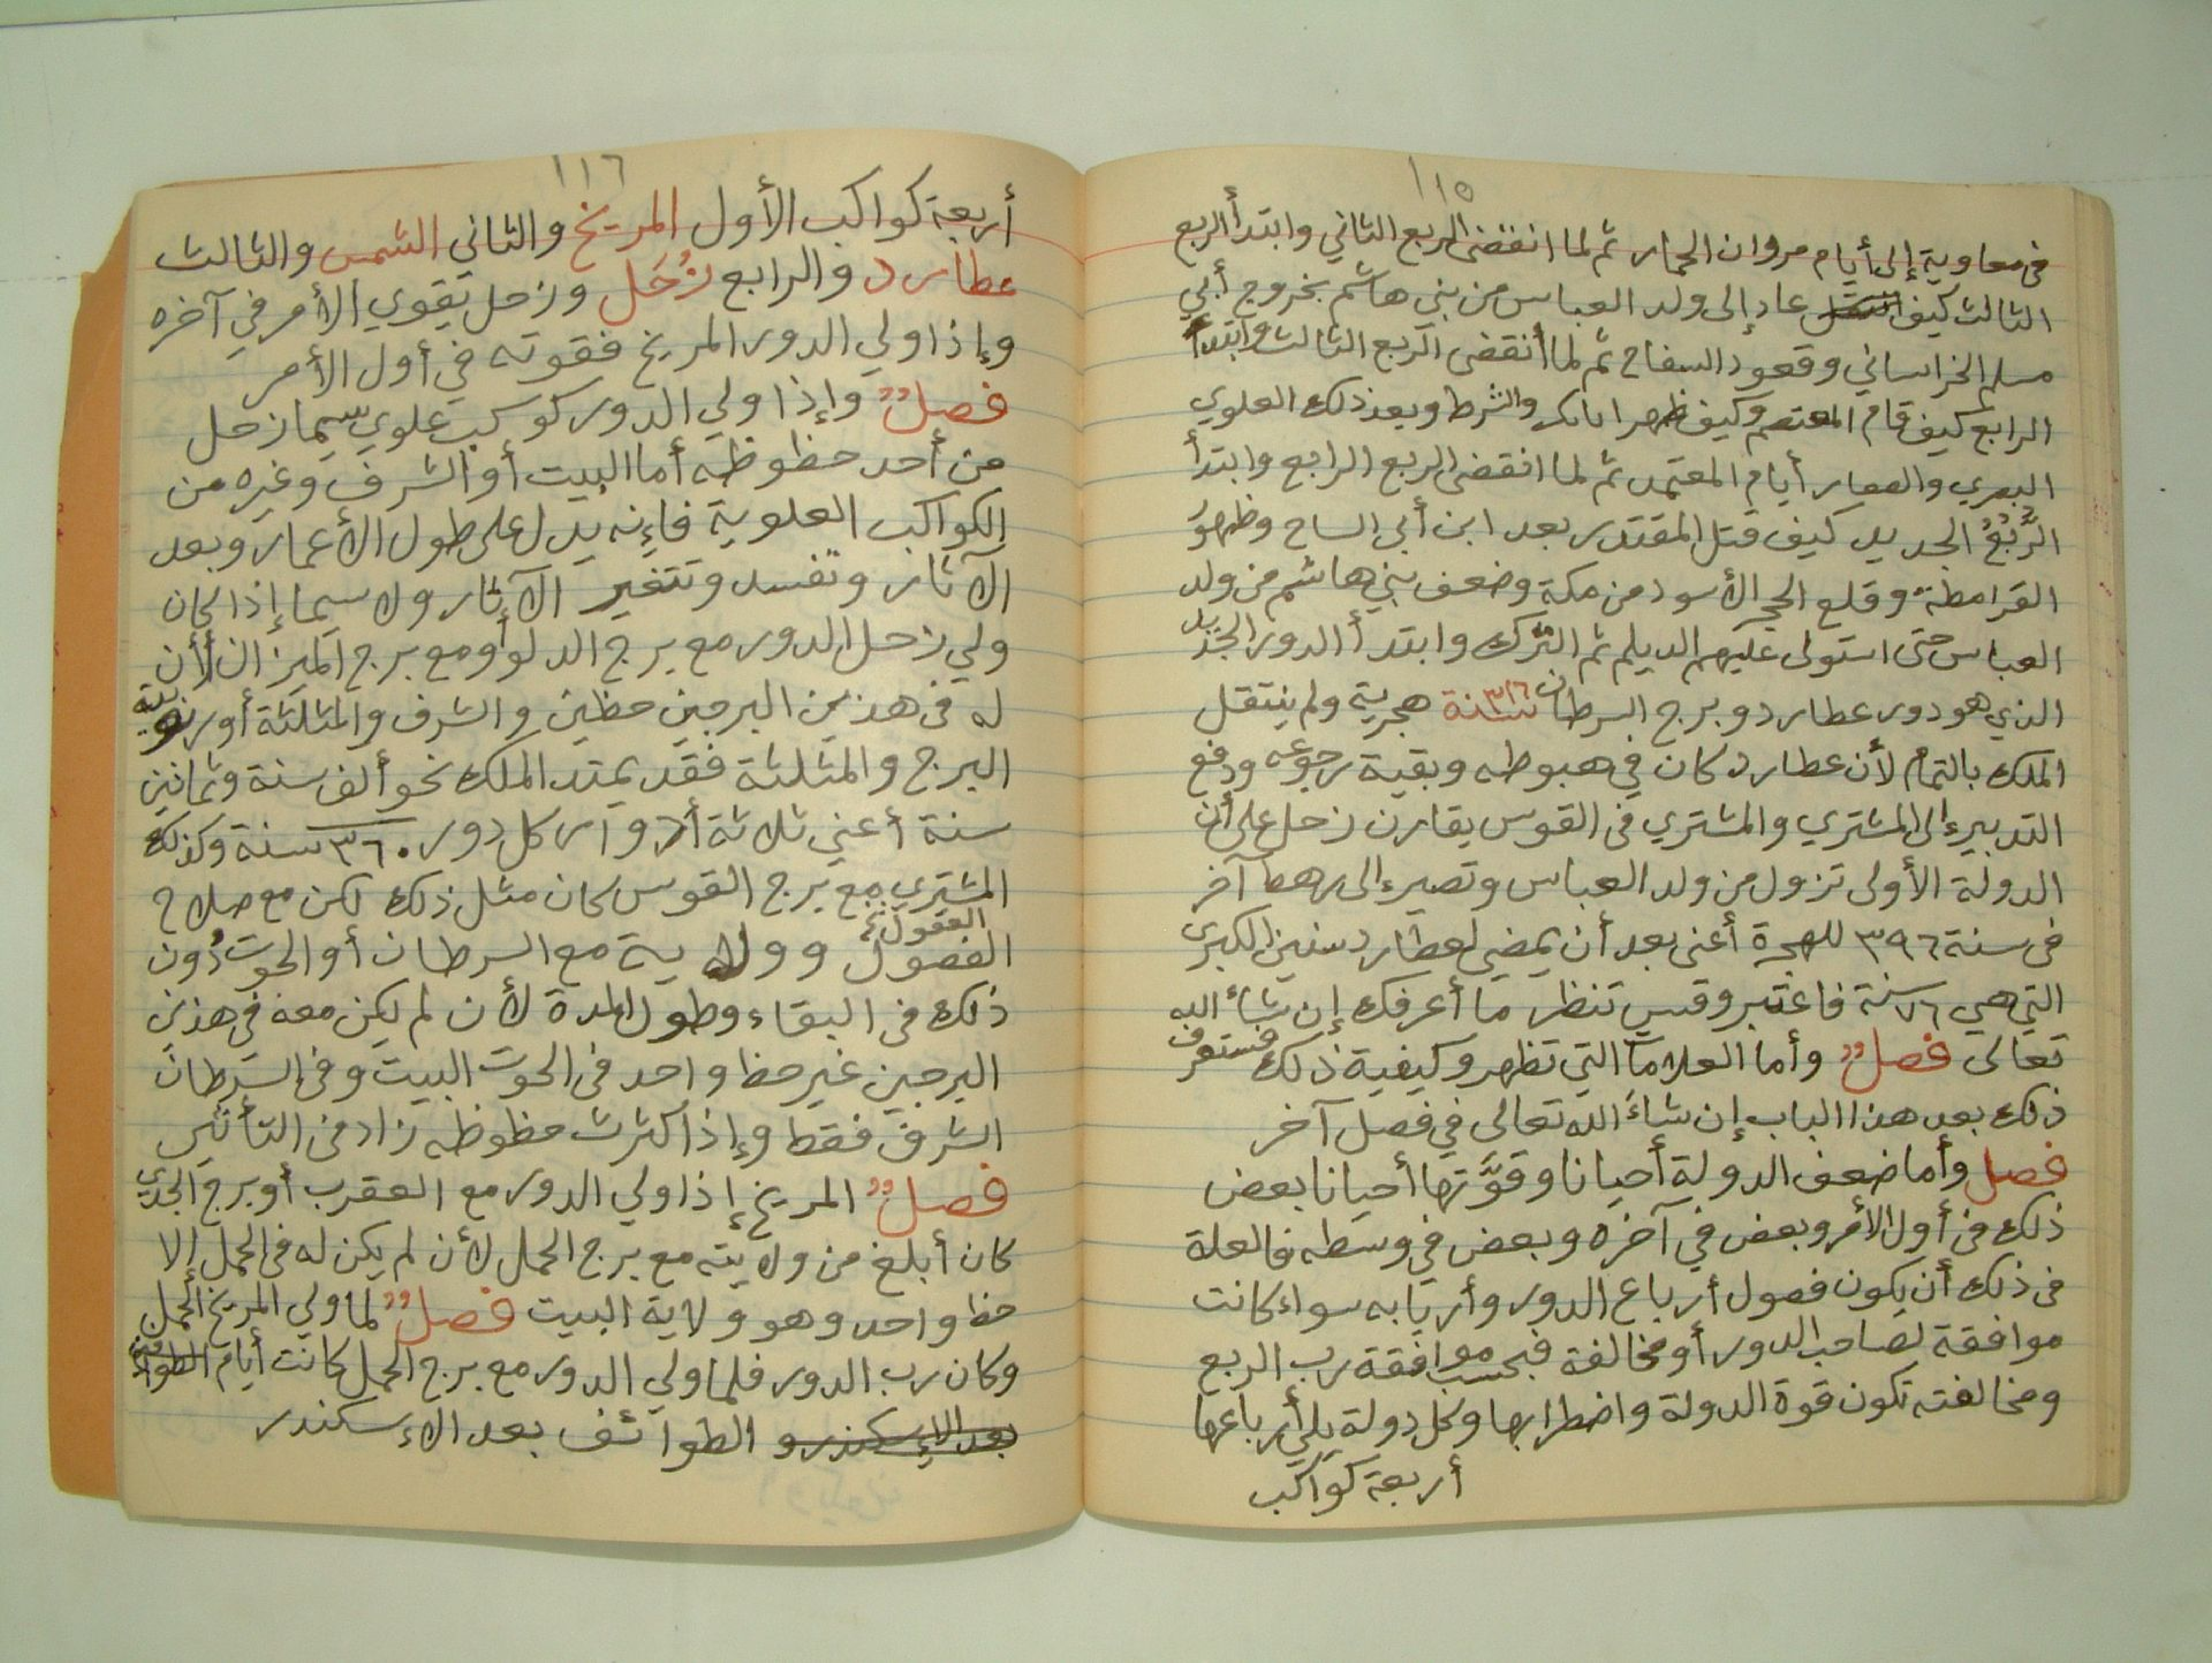 ١١٥
فى معاوية إلى أيام مروان الحمار ثم لما انقضى الربع الثاني وابتدأ الربع
الثالث كيف عاد إلى ولد العباس من بني هاشم بخروج أبي
مسلم الخراساني وقعود السفاح ثم لما أنقضى الربع الثالث وابتدأ
الرابع كيف قام المعتصم وكيف ظهر بابك والشرط وبعد ذلك العلوي
البصري والصعار أيام المعتمد ثم لما انقضى الربع الرابع وابتدأ
الرُّبْعُ الجديد كيف قتل المقتدر بعد ابن أبي الساح وظهور
القرامطة وقلع الحجر الأسود من مكة وضعف بني هاشم من ولد
العباس حتى استولى عليهم الديلم ثم التّرك وابتدأ الدور الجديد
الذي هو دور عطارد وبرج السرطان سنة ٣١٦ هجرية ولم ينتقل
الملك بالتمام لأن عطارد كان في هبوطه وبقية رجوعه ودفع
التدبير إلى المشتري والمشتري فى القوس يقارن زحل على أن
الدولة الأولى تزول من ولد العباس وتصير إلى رهط آخر
فى سنة ٣٩٦ للهجرة أعنى بعد أن يمضي لعطارد سنين الكبرى
التي هي ٧٦ سنة فاعتبر وقس تنظر ما أعرفك إن شاء الله
تعالى فصل وأما العلامات التي تظهر وكيفية ذلك فستعرف
ذلك بعد هذا الباب إن شاءَ الله تعالى في فصل آخر
فصل وأما ضعف الدولة أحيانا وقوَّتها أحيانا بعض
ذلك فى أول الأمر وبعض في آخره وبعض في وسطه فالعلة
فى ذلك أن يكون فصول أرباع الدور وأربابه سواء كانت
موافقة لصاحب الدور أو مخالفة فبحسب موافقة رب الربع
ومخالفته تكون قوة الدولة واضطرابها وكل دولة يلي أرباعها
أربعة كواكب
١١٦
أربعة كواكب الأول المريخ والثاني الشمس والثالث
عطارد والرابع زُحَل وزحل يقوي الأمر في آخره
وإذا ولي الدور المريخ فقوته في أول الأمر
فصل وإذا ولي الدور كوكب علوي سيما زحل
من أحد حظوظه أما البيت أو الشرف وغيره من
الكواكب العلوية فإنه يدل على طول الأعمار وبعد
الآثار وتفسد وتتغير الآثار ولا سيما إذا كان
ولي زحل الدور مع برج الدلو أو مع برج الميزان لأن
له فى هذين البرجين حظين والشرف والمثلثة أو ربوبية
البرج والمثلثة فقد يمتد الملك نحو ألف سنة وثمانين
سنة أعني ثلاثة أدوار كل دور ٣٦٠ سنة وكذلك
المشتري مع برج القوس كان مثل ذلك لكن مع صلاح
العقول
الفصول وولاية مع السرطان أو الحوت دُون
ذلك فى البقاء وطول المدة لأن لم يكن معه فى هذين
البرجين غير حظ واحد فى الحوت البيت وفى السّرطان
الشرف فقط وإذا كثرت حظوظه زاد فى التأثير
فصل المريخ إذا ولي الدور مع العقرب أو برج الجدي
كان أبلغ من ولايته مع برج الحمل لأن لم يكن له فى الحمل إلا
حظ واحد وهو ولاية البيت فصل لما ولي المريخ الحمل
وكان رب الدور فلما ولي الدور مع برج الحمل كانت أيام الطوائف
بعد الإسكندر و الطوائف بعد الاسكندر